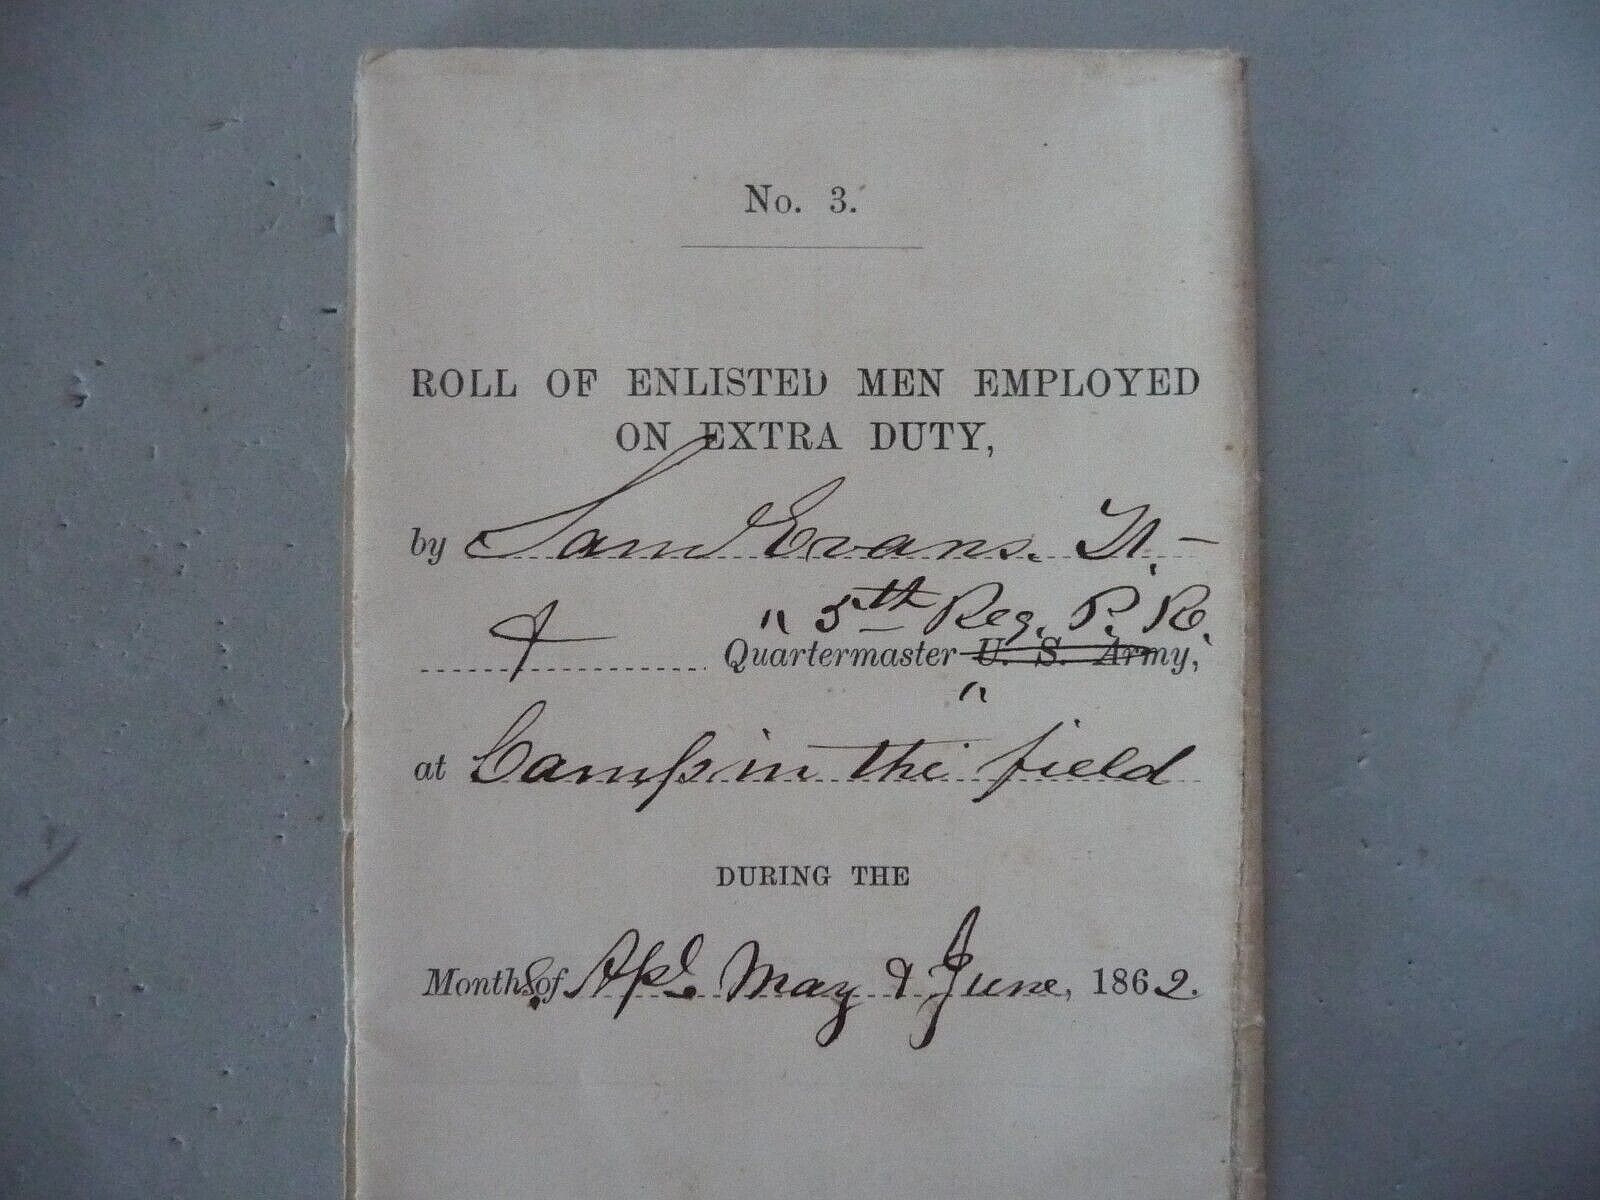 No. 3.
ROLL OF ENLISTED MEN EMPLOYED
ON EXTRA DUTY,
by Sam Evans. Lt. –
" 5th Reg. P. R.
& Quartermaster U. S. Army,
"
at Camp in the field
DURING THE
Months of Apl. May & June, 1862.